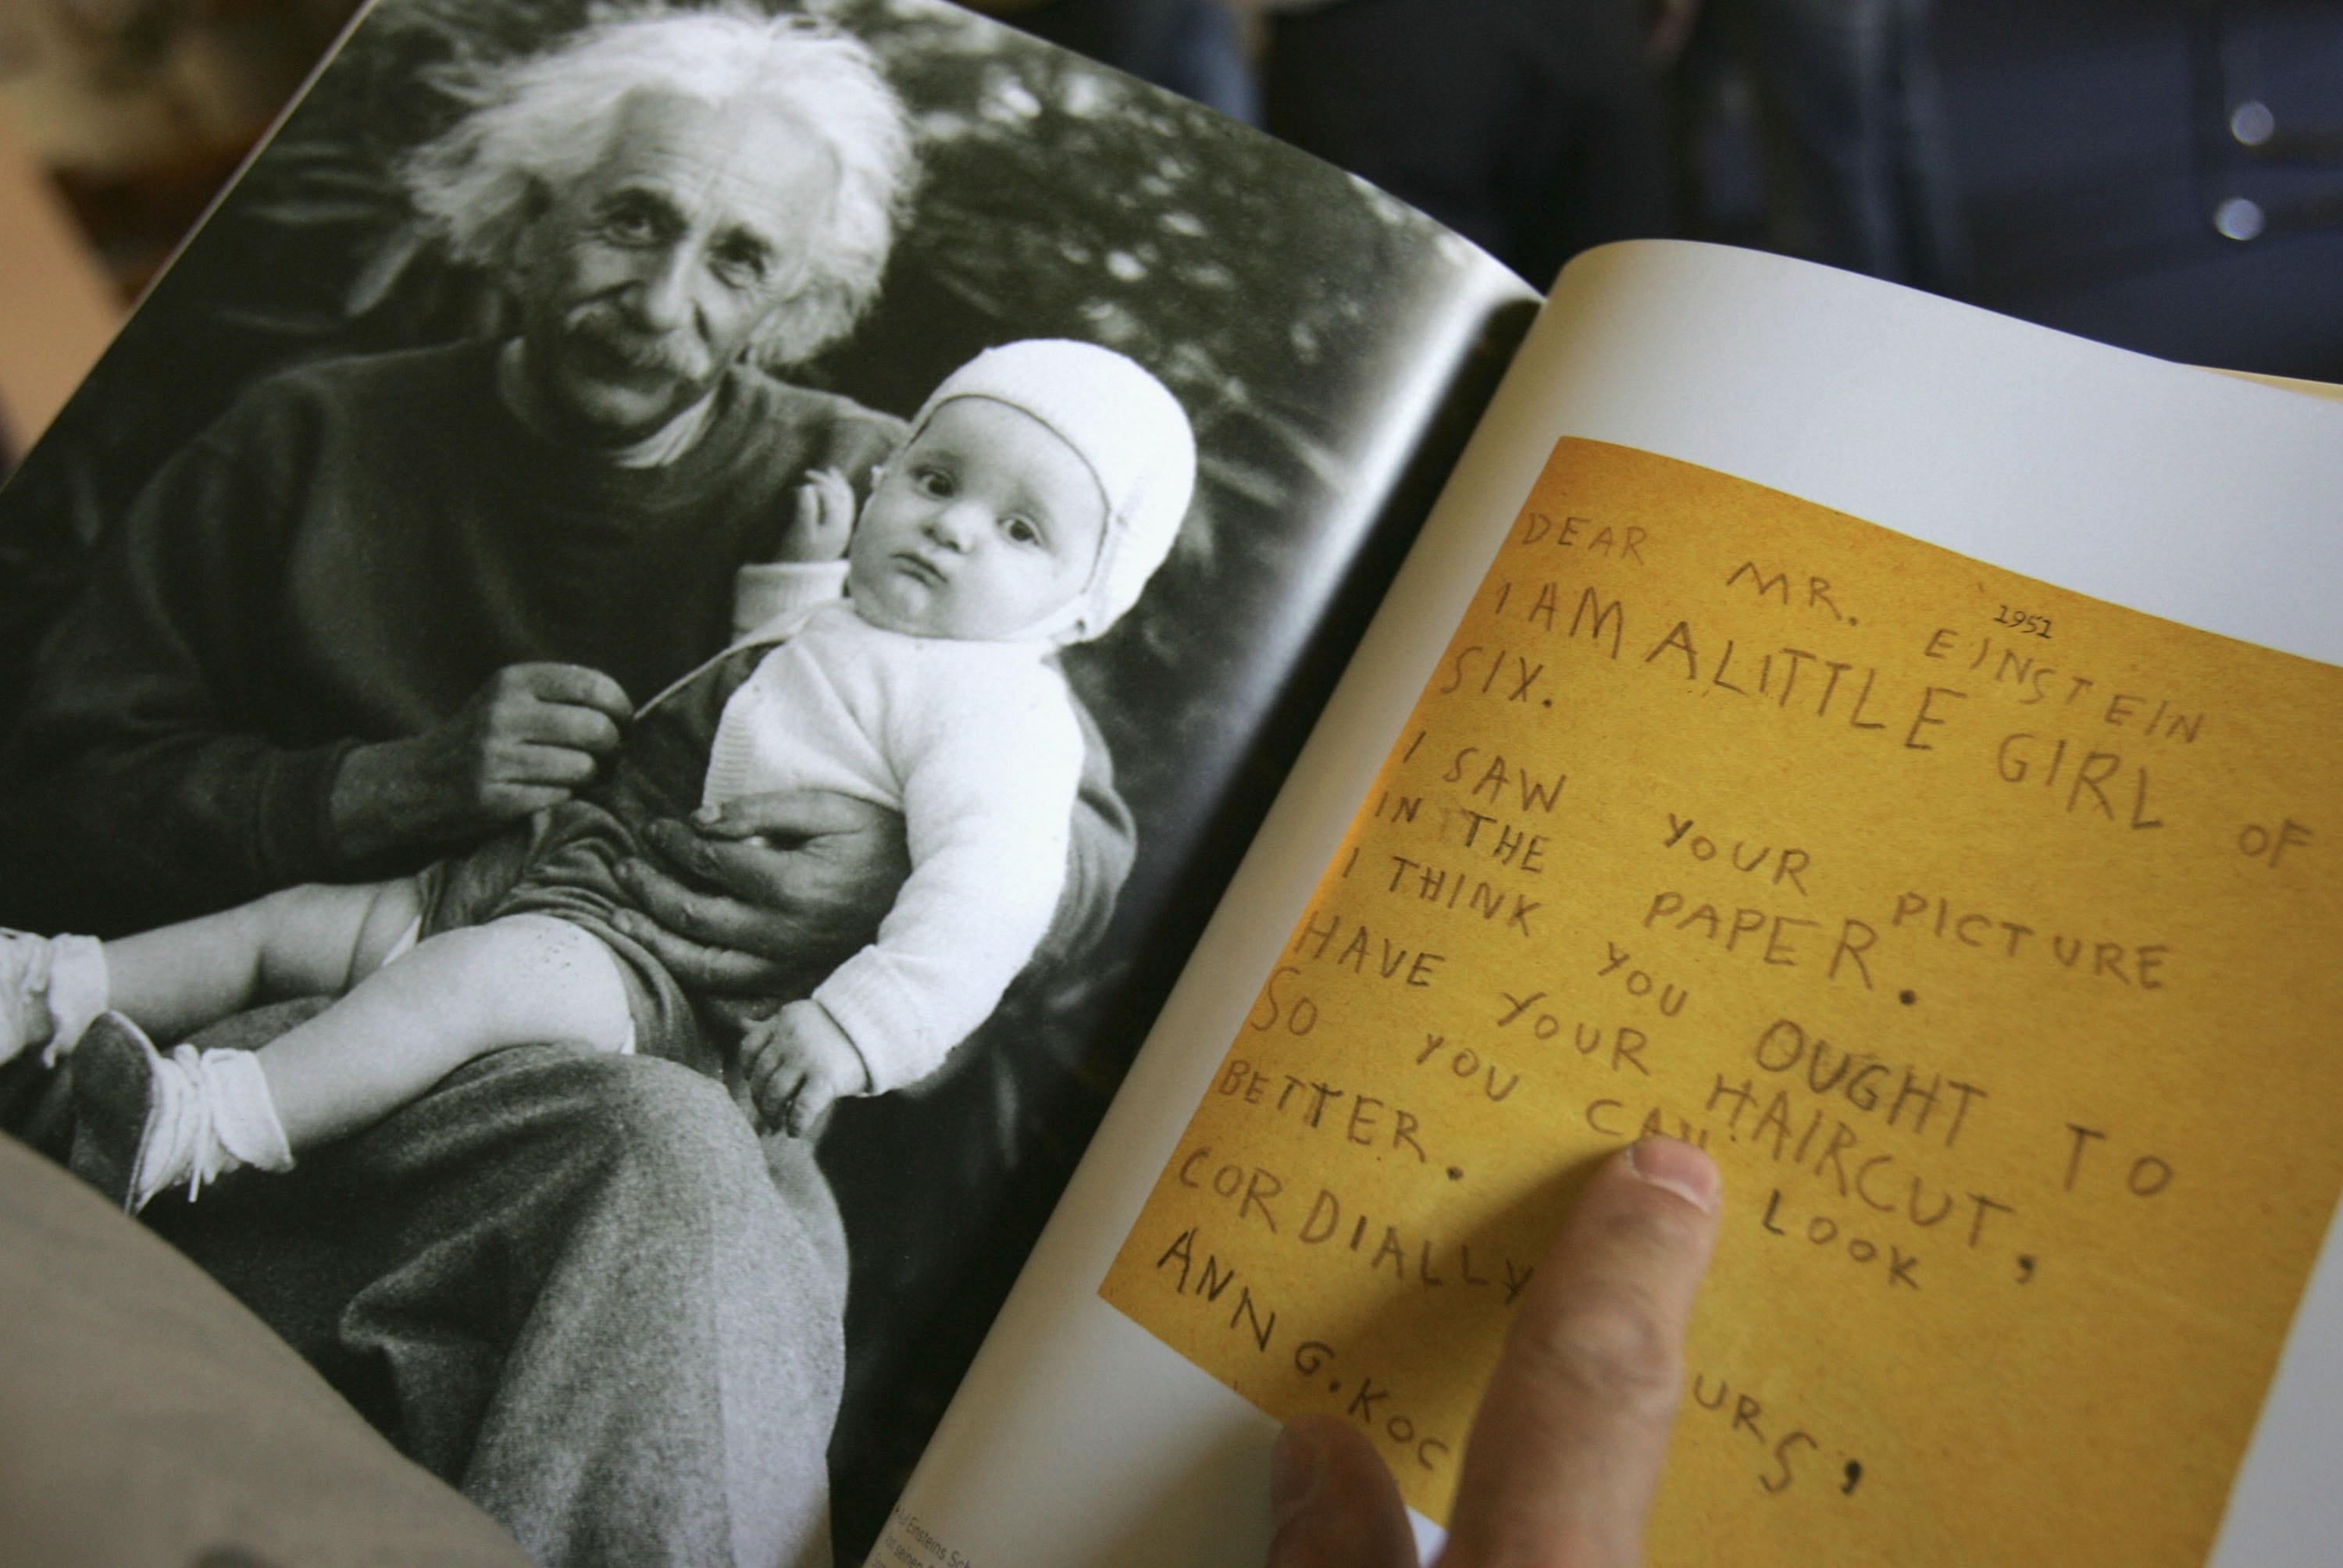 DEAR MR. EINSTEIN
1951
I AM A LITTLE GIRL OF
SIX.
I SAW YOUR PICTURE
IN THE PAPER.
I THINK YOU OUGHT TO
HAVE YOUR HAIRCUT,
SO YOU CAN LOOK
BETTER.
CORDIALLY URS,
ANN G. KOC
Auf Einsteins Sch